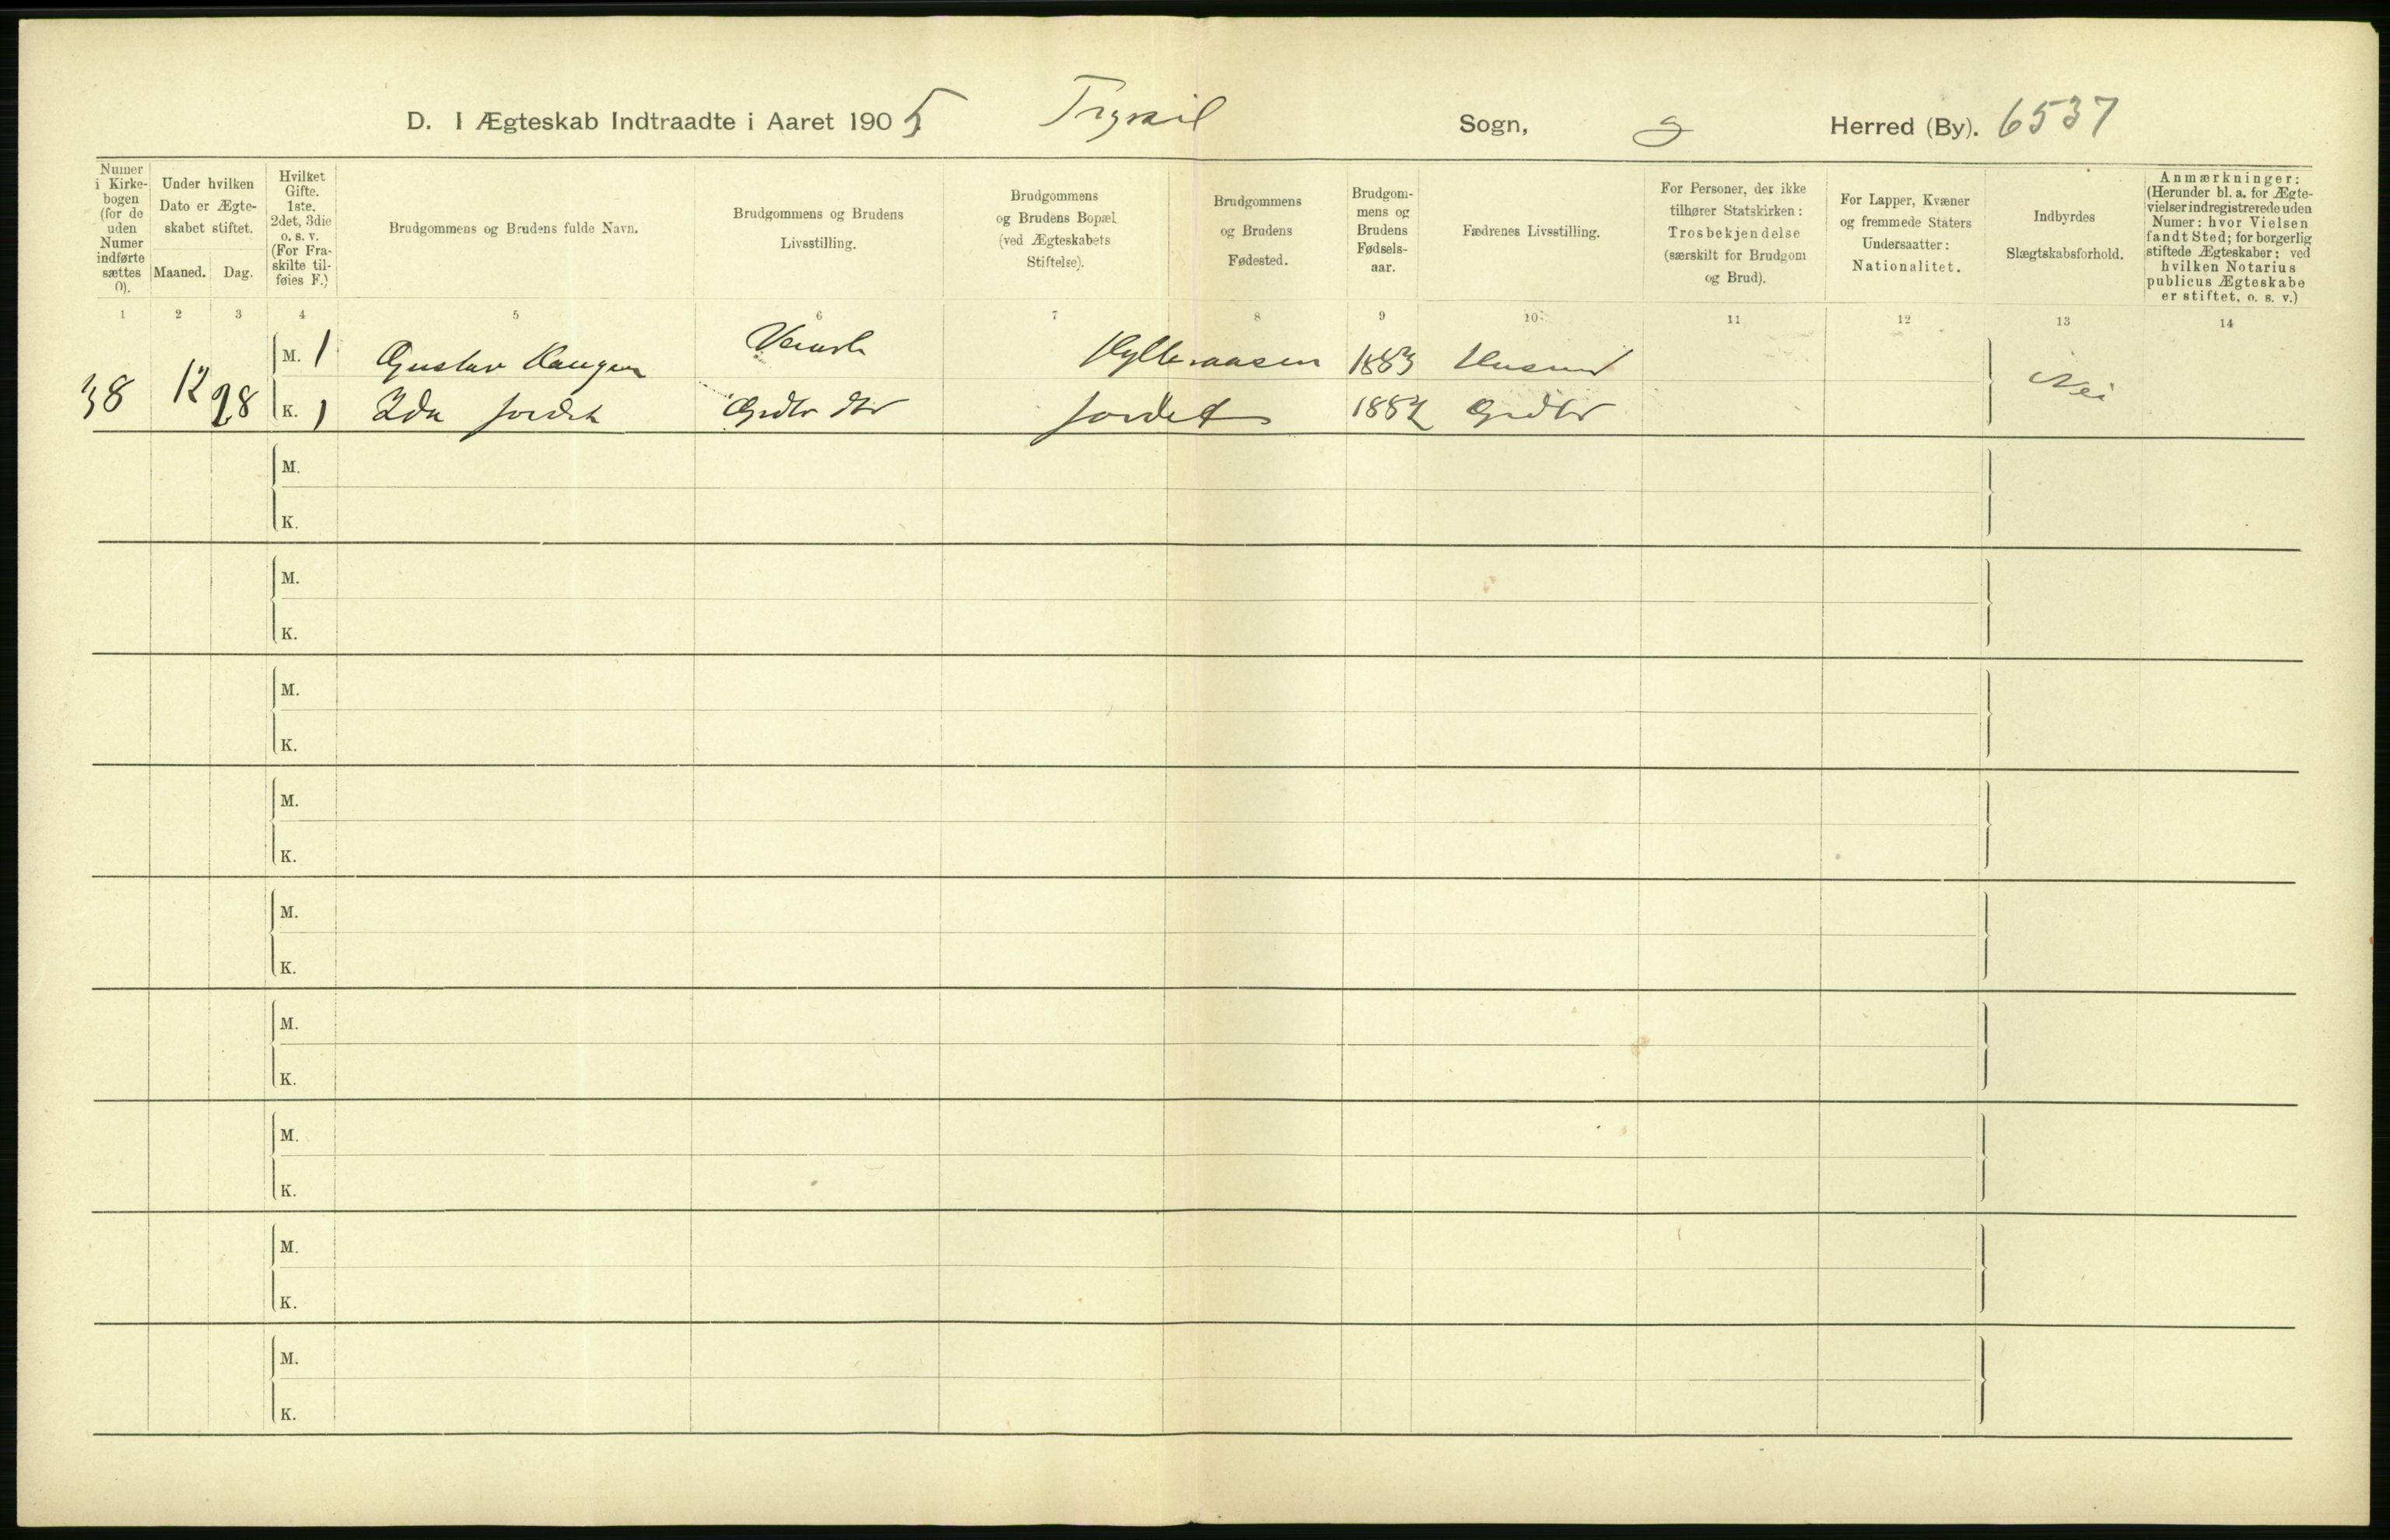 D. I Ægteskab Indtraadte i Aaret 1905 Trysil Sogn, Herred (By). 6537
Numer i Kirkebogen (for de uden Numer indførte sættes 0).
Under hvilken Dato er Ægteskabet stiftet.
Maaned. Dag.
Hvilket Gifte. 1ste, 2det, 3die o. s. v. (For Fraskilte tilføies F.)
Brudgommens og Brudens fulde Navn.
Brudgommens og Brudens Livsstilling.
Brudgommens og Brudens Bopæl (ved Ægteskabets Stiftelse).
Brudgommens og Brudens Fødested.
Brudgommens og Brudens Fødselsaar.
Fædrenes Livsstilling.
For Personer, der ikke tilhører Statskirken: Trosbekjendelse (særskilt for Brudgom og Brud).
For Lapper, Kvæner og fremmede Staters Undersaatter: Nationalitet.
Indbyrdes Slægtskabsforhold.
Anmærkninger: (Herunder bl. a. for Ægtevielser indregistrerede uden Numer: hvor Vielsen fandt Sted; for borgerlig stiftede Ægteskaber: ved hvilken Notarius publicus Ægteskabe er stiftet, o. s. v.)
1 2 3 4 5 6 7 8 9 10 11 12 13 14
M. 1 Gustav Haugen Hylleraasen 1883
38 12 28 K. 1 Ida Jordet Grdbr dtr Jordet 1882 Grdbr Nei
M.
K.
M.
K.
M.
K.
M.
K.
M.
K.
M.
K.
M.
K.
M.
K.
M.
K.